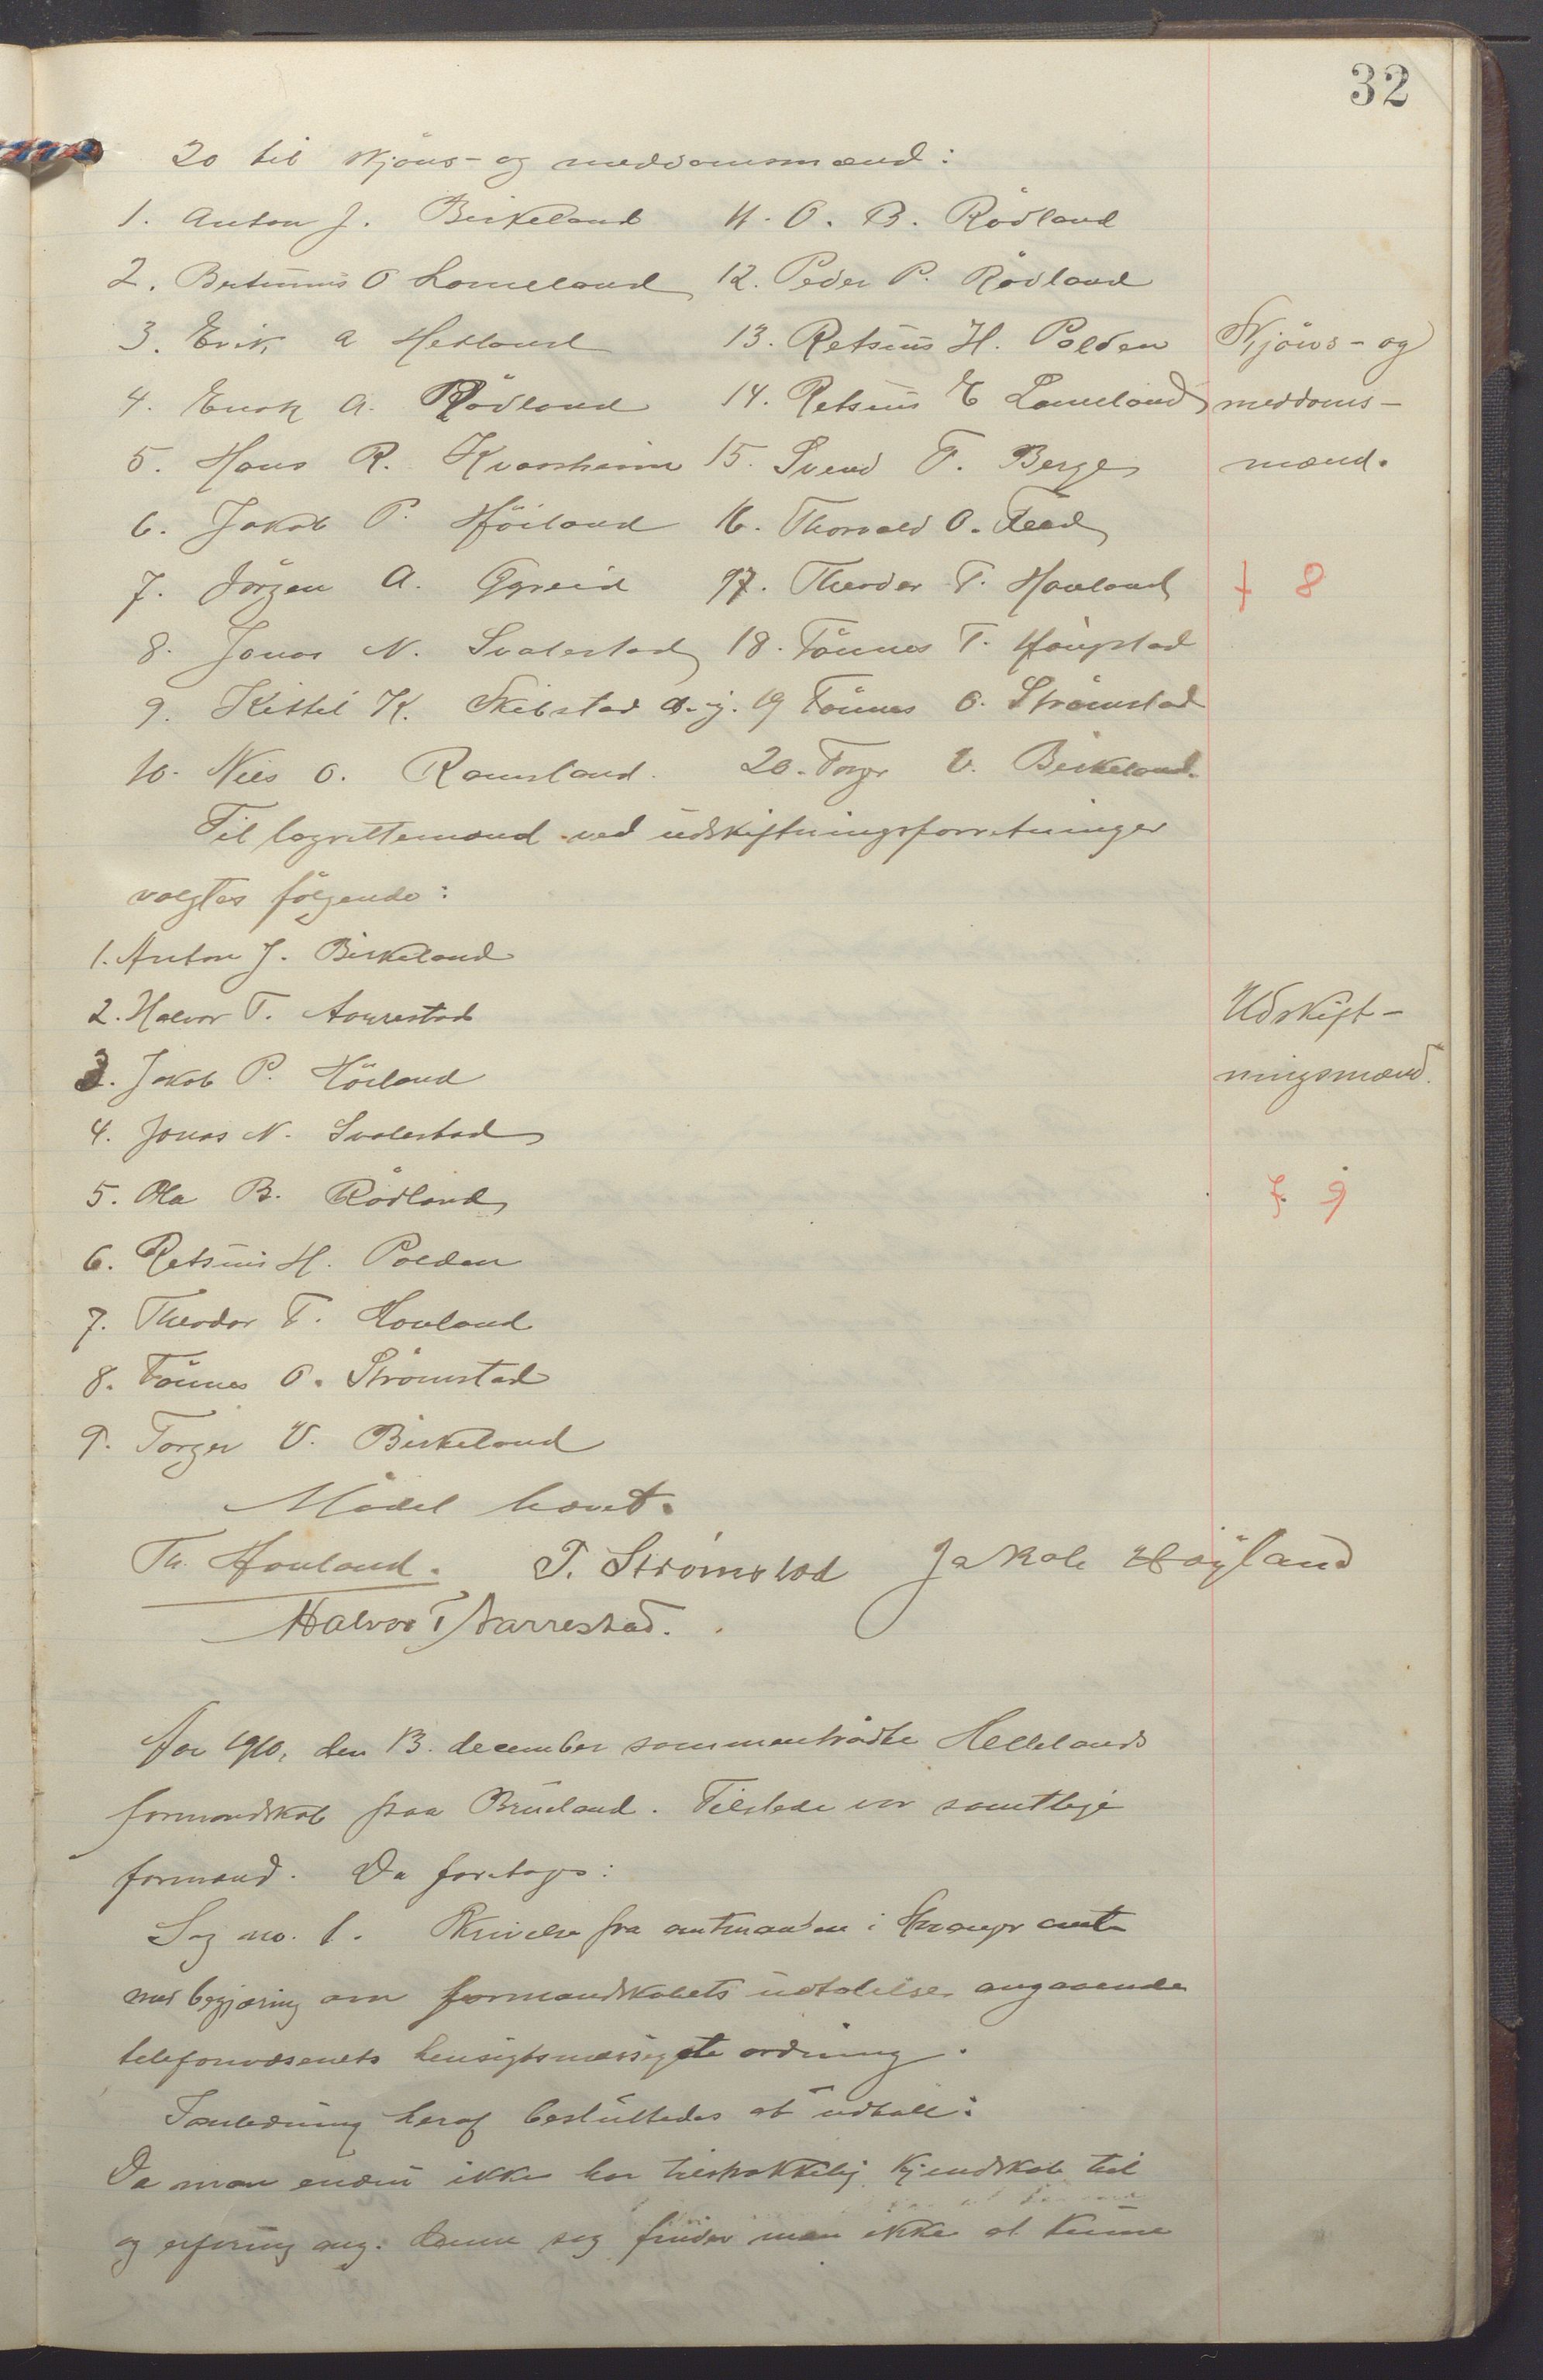 32
20 til skjöns- og meddomsmænd:
1. Anton J. Birkeland 11. O. B. Rödland
2. Bertinius O Lomeland 12. Peder P. Rödland
3. Erik A Hetland 13. Retsius H. Polden
Skjöns- og
4. Enok A. Rödland 14. Retsius E Lomeland
meddoms-
5. Hans R. Kvassheim 15. Svend T. Berge
mænd.
6. Jakob P. Höiland 16. Thorvald O. Tead
7. Jörgen A. Gyreid 17. Theodor T. Hovland
f 8
8. Jonas N. Svalestad 18. Tönnes T. Höugstad
9. Kittel K. Skibstad d. y. 19 Tönnes O. Strömstad
10. Nils O. Ramsland. 20. Torger V. Birkeland.
Til lagrettemænd ved udskiftningsforretninger
valgtes fölgende:
1. Anton J. Birkeland
2. Halvor T. Aarrestad
Udskift-
3. Jakob P. Höiland
ningsmænd.
4. Jonas N. Svalestad
5. Ola B. Rödland
f. 9
6. Retsius H. Polden
7. Theodor T. Hovland
8. Tönnes O. Strömstad
9. Torger V. Birkeland
Mödet hævet.
Th. Hovland. T. Strømstad Jakob Höyland
Halvor T Aarrestad.
Aar 1910, den 13. december sammentraadte Hellelands
formandskab paa Brueland. Tilstede var samtlige
formænd. Da foretoges:
Sag no. 1. Skrivelse fra amtmanden i Stavanger amt
med begjæring om formandskabets udtalelse angaaende
telefonvæsenets hensigtsmæssigste ordning.
I anledning heraf besluttedes at udtale:
Da man endnu ikke har tilstrækkelig kjendskab til
og erfaring ang. denne sag finder man ikke at kunne